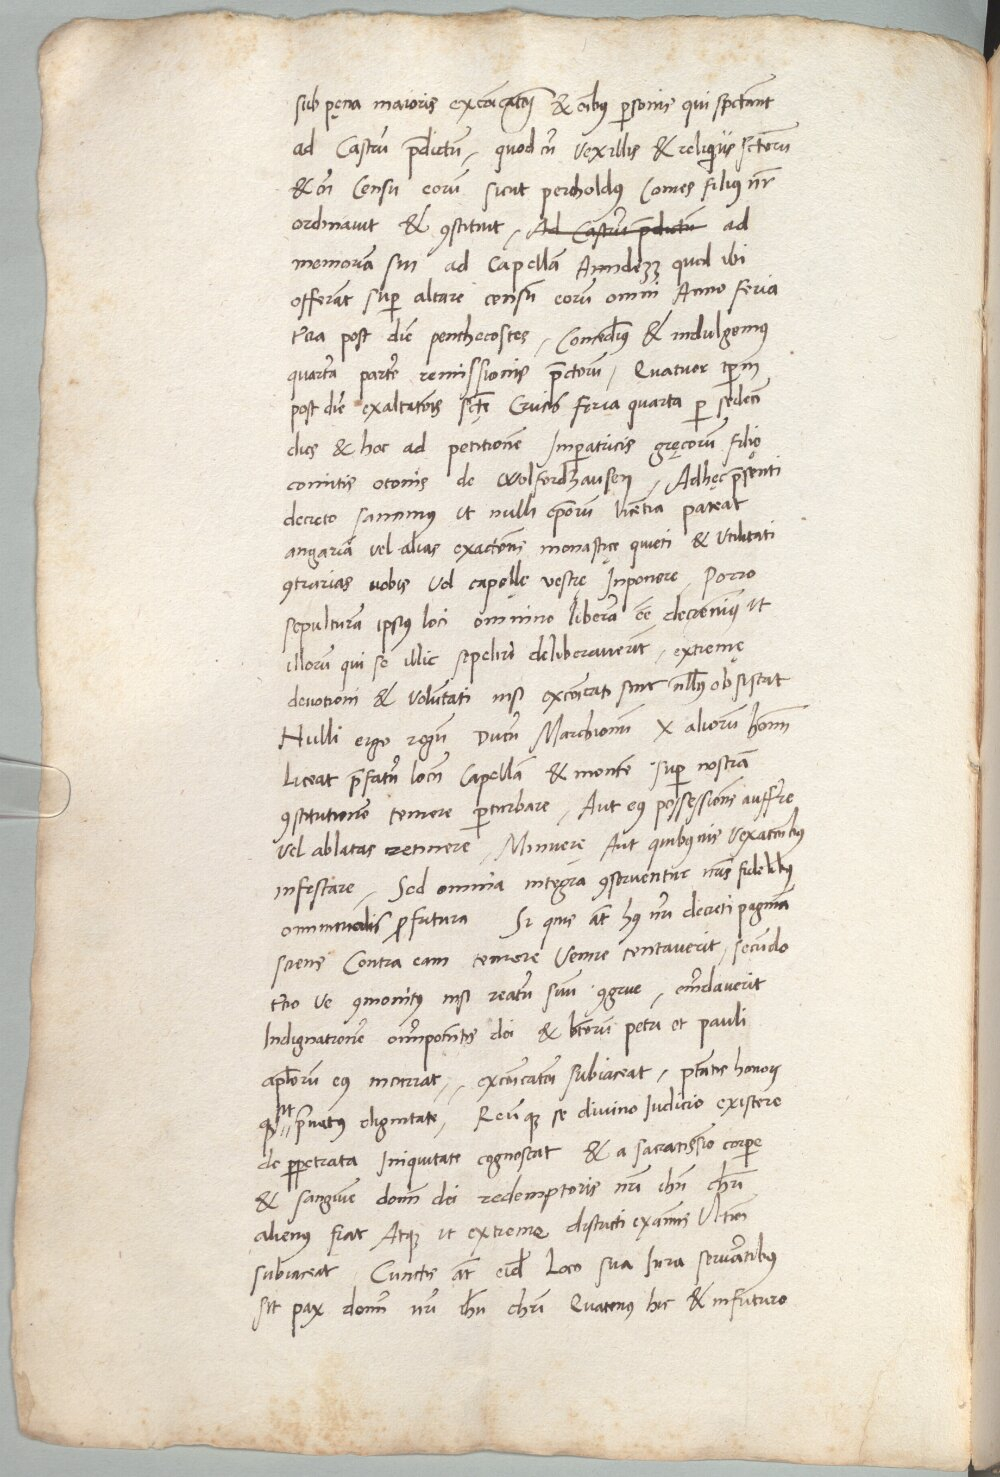 sub pęna maioris excōicatōīs & oībus p̱sonis qui spectant
ad Castrū p̄dictum, quod cū vexillis & reliquiis sctorū
& oī Censu eorū sicut percholdus Comes filius nr̄
ordinavit & ꝯstituit, Ad Castrū p̄dictū ad
memoriā sui ad Capellā quod ibi
offerant sup̱ altare censū eorū omni Anno feria
t'tia post diē penthecostes, Concedim̄us & indulgemus
quartā partē remissionis p̄ctorū, Quatuor tp̄m
post diē exaltatōis sctę Crucis feria quarta p̱ sedecī
dies & hoc ad petitionē Imp̱atricis gręcorū filię
comitis otonis de Wolfordhausen, Adhęc p̄sęnti
decreto sanimus ut nulli ep̄orū licentia pateat
angariā vel alias exactōnes monasticę quieti & utilitati
ꝯtrarias uobis vel capellę vestrę Inponere, Porro
sepulturā ipsius loci omnino liberā eē decernimus ut
illorum qui se illic sepeliri deliberaverint, extremę
devotioni & voluntati nisi excōicati sint nullus obsistat
Nulli ergo regū Ducū Marchionū X aliorū hoīm
Liceat p̄fatū locū Capellā & montē sup̱ nostrā
ꝯstitutionē temere p̱turbare, Aut eius possessiones aufferre
vel ablatas retinere, Minuere Aut quibusvis vexationibus
infestare, Sed omnia integra ꝯserventur nr̄is fidelibus
omnimodis ꝓfutura Si quis aūt hus nr̄i decreti paginā
sciens Contra eam temere Venire tentaverit, secundo
t'tio ve ꝯmonitus nisi reatū suū ꝯgrue, emēdaverit
Indignationē om̄ipotentis dei & btorum petri et pauli
apłorum eius incurrat,, excōicatōi subiaceat, ptātis honoris
qz sit p̄vatus dignitate, Reumqz se divino Iudicio existere
de p̱petrata Iniquitate cognoscat & a sacratissīo corpe
& sanguine domī dei redemptoris nr̄i ihū chrī
alienus fiat Atqz ut extremę districti examīs Ultioni
subiaceat, Cunctis aūt eidē Loco sua Iura servantibus
sit pax domī nr̄i ihū chrī Quatenus hic & infuturo